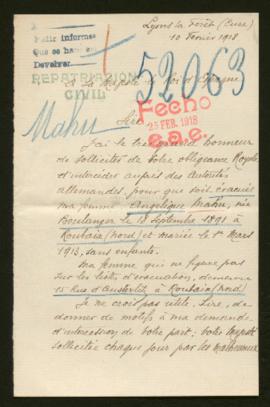 Lyons la Forêt (Eure)
10 Février 1918
Pedir informes
Que se haga
Devolver
52063
REPATRIACIÓN
CIVIL
A Sa Majesté le Roi d'Espagne
Fecho
25 FEB. 1918
Mahu
Sire,
J'ai le très grand honneur
de solliciter de Votre obligeance Royale
d'intercéder auprès des Autorités
allemandes, pour que soit évacuée
ma femme Angélique Mahu, née
Boulanger le 18 Septembre 1891 à
Roubaix (Nord) et mariée le 1er Mars
1913, sans enfants.
Ma femme qui ne figure pas
sur les listes d'évacuation, demeure
15 Rue d'Austerlitz à Roubaix (Nord)
Je ne crois pas utile, Sire, de
donner de motifs à ma demande
d'intercession de Votre part; Votre Majesté
sollicitée chaque jour par les malheureux